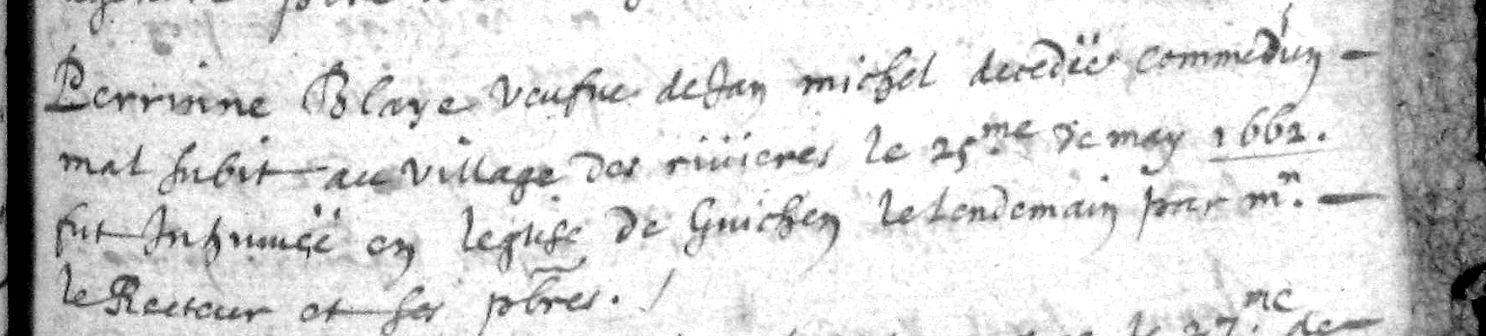 Perrinne Blaye veufve de Jan michel decedëe comme d'un
mal subit au village des rivieres le 25.me de may 1662.
fut Inhumëe en leglise de Guichen le lendemain par mr.
le Recteur et ses pbres.
le 27.me de